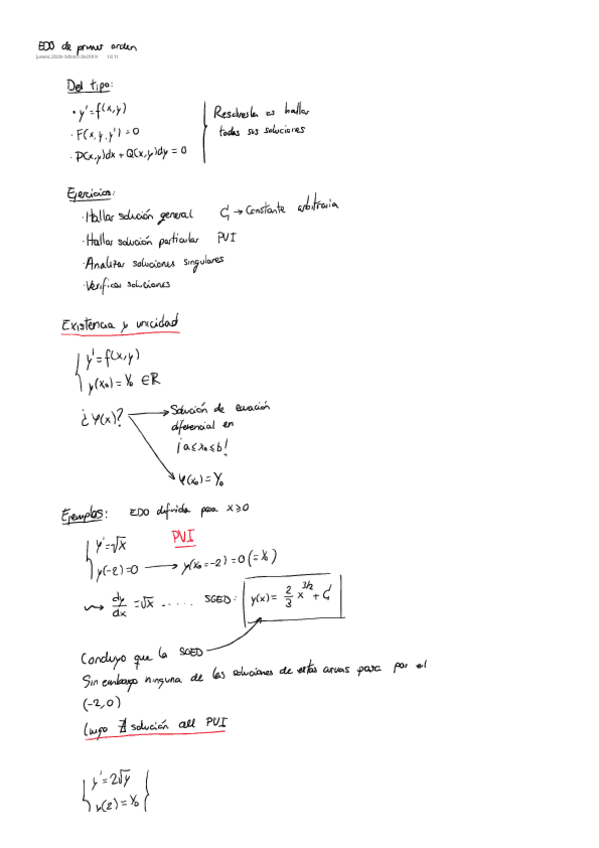 EDO de primer orden
Del tipo:
· y' = f(x,y)
· F(x,y,y') = 0
· P(x,y)dx + Q(x,y)dy = 0
Resolverla es hallar
todas sus soluciones
Ejercicios:
· Hallar solución general C → Constante arbitraria
· Hallar solución particular PVI
· Analizar soluciones singulares
· Verificar soluciones
Existencia y unicidad
y' = f(x,y)
y(x₀) = y₀ ∈ R
¿φ(x)?
Solución de ecuación
diferencial en
¡a ≤ x₀ ≤ b!
φ(x₀) = y₀
Ejemplos: EDO definida para x ≥ 0
y' = √x PVI
y(-2) = 0 → y(x₀ = -2) = 0 (= y₀)
dy/dx = √x ..... SGED: y(x) = 2/3 x^3/2 + C
Concluyo que la SGED
Sin embargo ninguna de las soluciones de estas curvas pasa por el
(-2,0)
Luego ∄ solución del PVI
y' = 2√y
y(2) = y₀